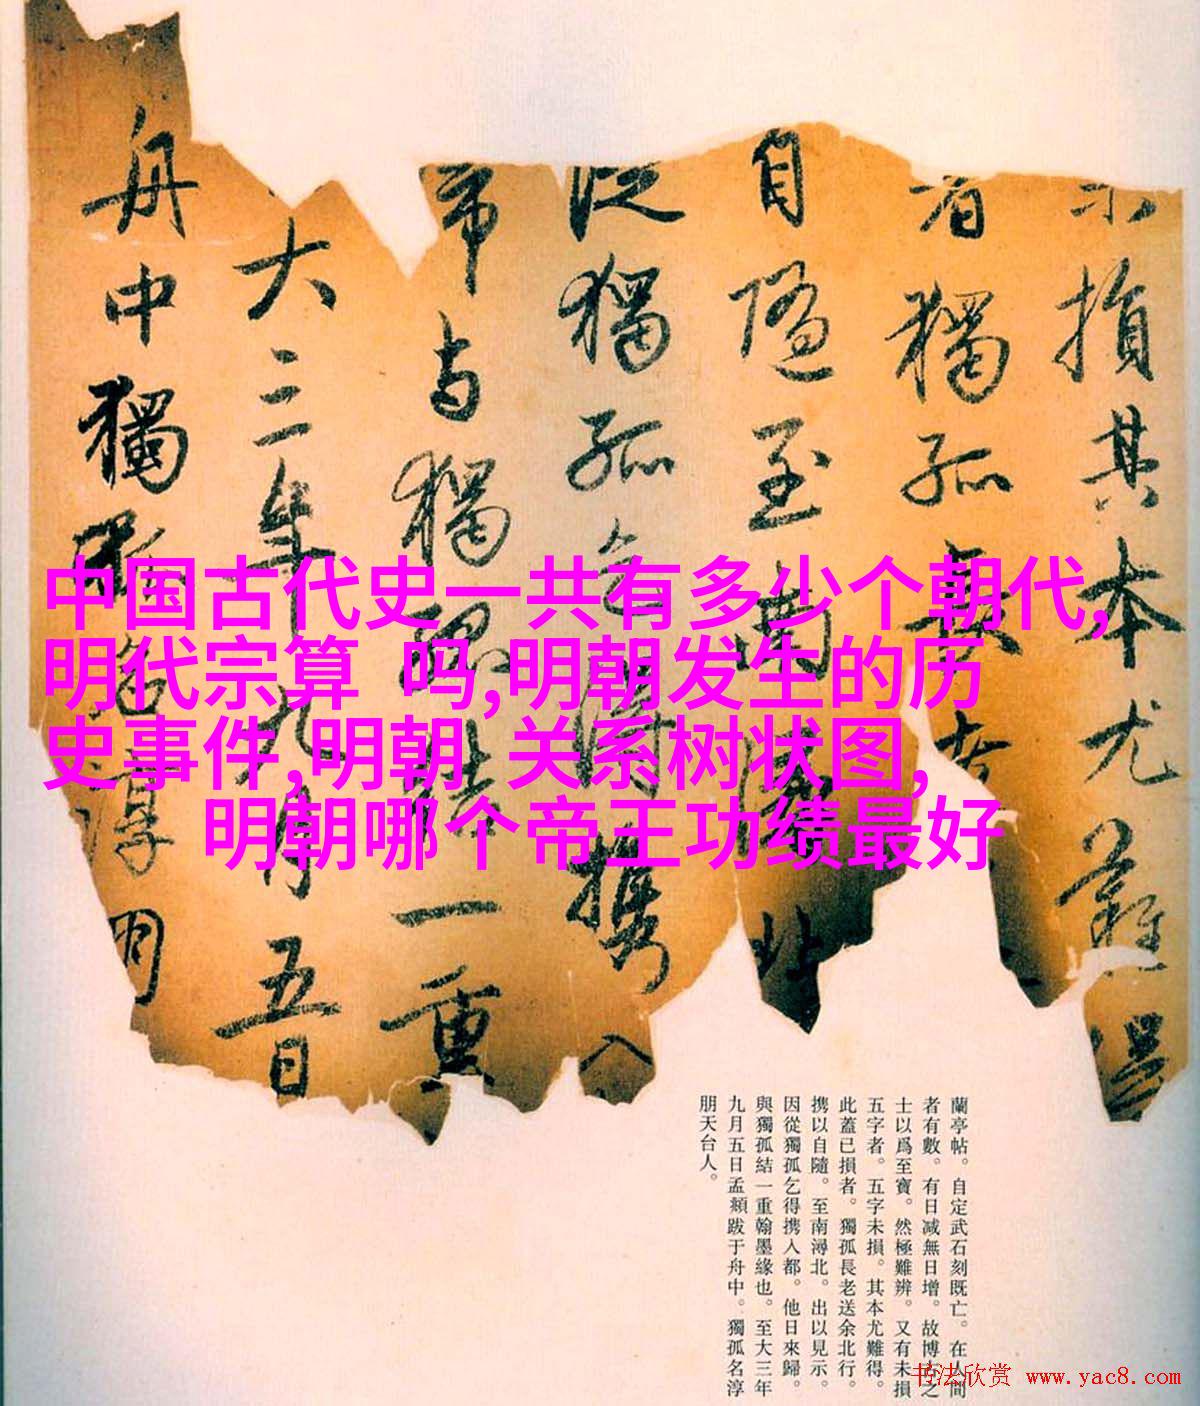 中国古代史一共有多少个朝代,
明代宗算 吗,明朝发生的历
史事件,明朝 关系树状图,
明朝哪个帝王功绩最好
損其本尤難得
者獨孤長老
自隨至南潯北
從獨孤乞得攜入
與獨孤結一重
大三年九月五日
舟中獨孤名淳朋
蘭亭帖。自定武石刻既亡。在人間
者有數。有日減無日增。故博古之
士以爲至寶。然極難辨。又有未損
五字者。五字未損。其本尤難得。
此蓋已損者。獨孤長老送余北行。
携以自隨。至南潯北。出以見示。
因從獨孤乞得携入都。他日來歸。
與獨孤結一重翰墨緣也。至大三年
九月五日孟頫跋于舟中。獨孤名淳
朋天台人。
书法欣赏 www.yac8.com